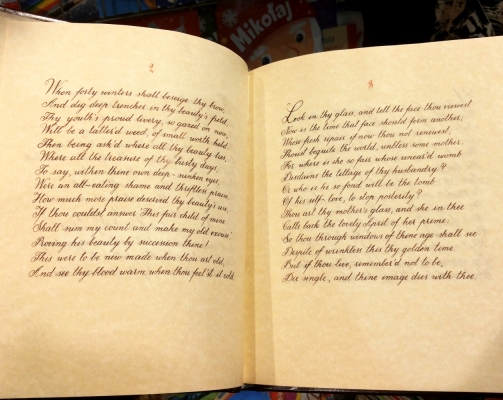 Mikołaj
2
When forty winters shall beseige thy brow,
And dig deep trenches in thy beauty's field,
Thy youth's proud livery, so gazed on now,
Will be a tatter'd weed, of small worth held:
Then being ask'd where all thy beauty lies,
Where all the treasure of thy lusty days,
To say, within thine own deep-sunken eyes,
Were an all-eating shame and thriftless praise.
How much more praise deserved thy beauty's use,
If thou couldst answer This fair child of mine
Shall sum my count and make my old excuse,
Proving his beauty by succession thine!
This were to be new made when thou art old,
And see thy blood warm when thou feel'st it cold.
3
Look in thy glass, and tell the face thou viewest
Now is the time that face should form another;
Whose fresh repair if now thou not renewest,
Thou dost beguile the world, unbless some mother.
For where is she so fair whose unear'd womb
Disdains the tillage of thy husbandry?
Or who is he so fond will be the tomb
Of his self-love, to stop posterity?
Thou art thy mother's glass, and she in thee
Calls back the lovely April of her prime:
So thou through windows of thine age shall see
Despite of wrinkles this thy golden time.
But if thou live, remember'd not to be,
Die single, and thine image dies with thee.